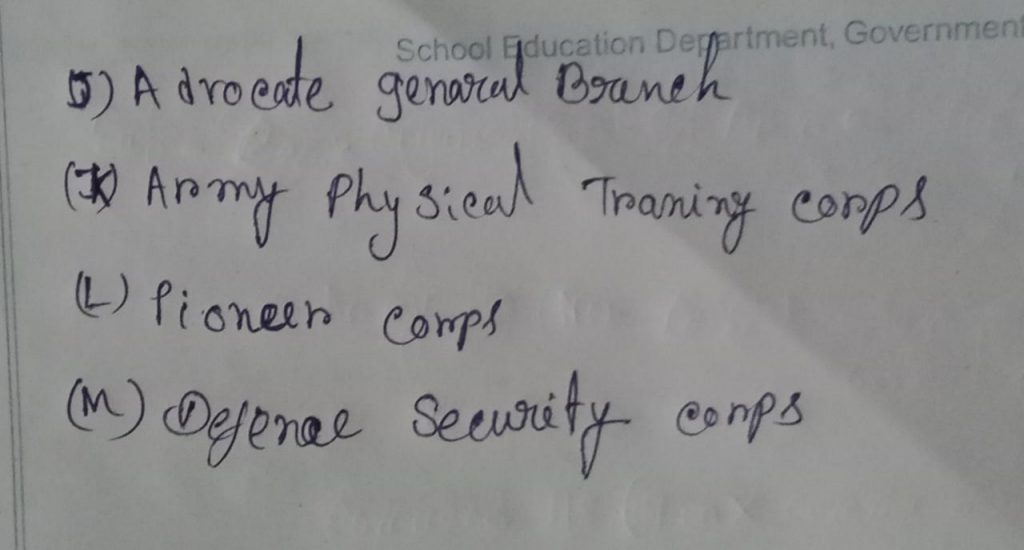 School Education Department, Government
J) Advocate genaral Branch
(K) Army Physical Traning corps
(L) Pioneer corps
(M) Defence Security corps